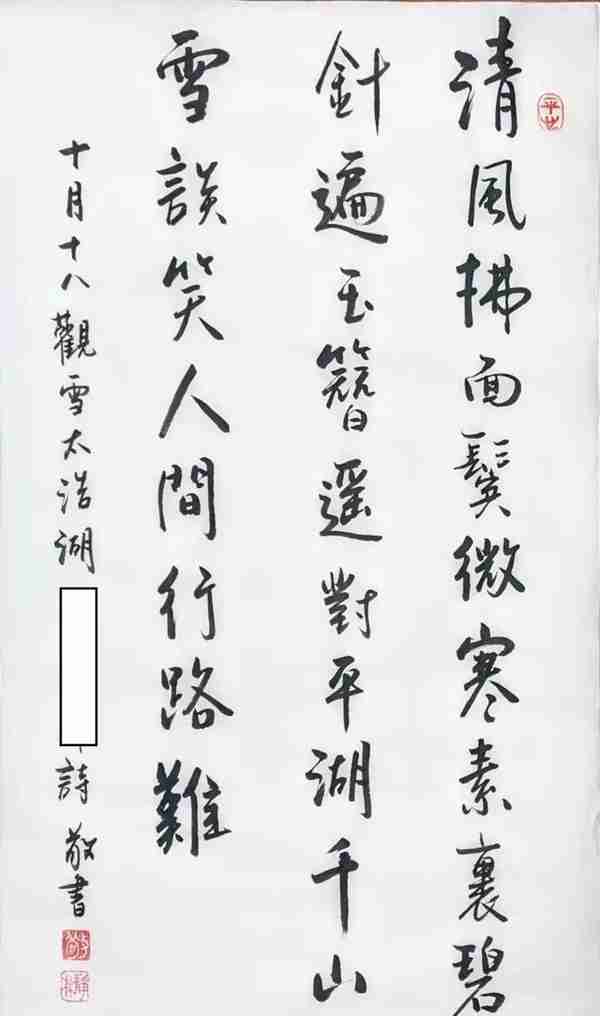 清風拂面鬢微寒素裹碧
針遍玉簪遥對平湖千山
雪談笑人間行路難
十月十八觀雪太浩湖
詩敬書